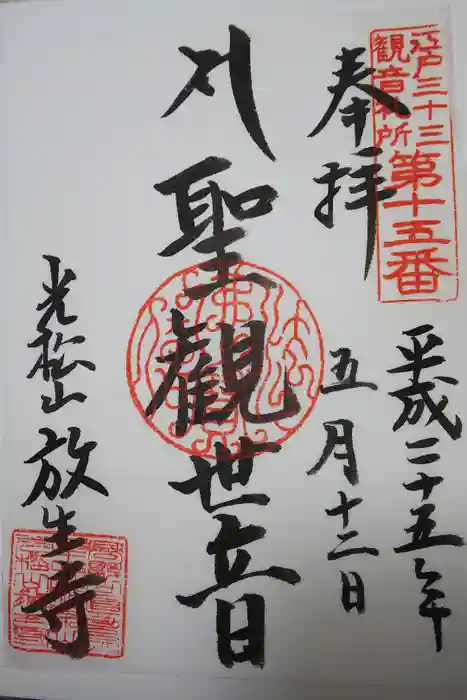 江戸三十三
観音札所
第十五番
奉拝
平成二十五年
五月十二日
聖観世音
光松山
放生寺